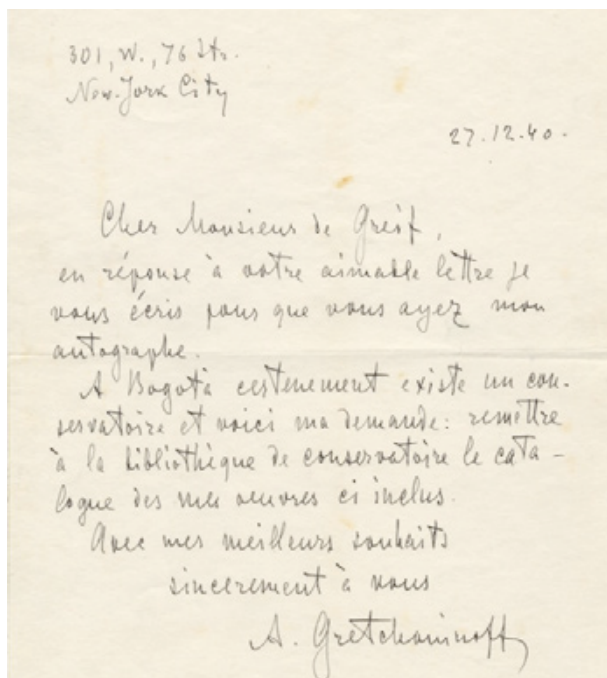 301, W., 76 Str.
New-York City
27.12.40.
Cher Monsieur de Greif,
en réponse à votre aimable lettre je
vous écris pour que vous ayez mon
autographe.
A Bogotà certenement existe un con-
servatoire et voici ma demande: remettre
à la bibliothèque de conservatoire le cata-
logue des mes oeuvres ci inclus.
Avec mes meilleurs souhaits
sincerement à vous
A. Gretchaninoff